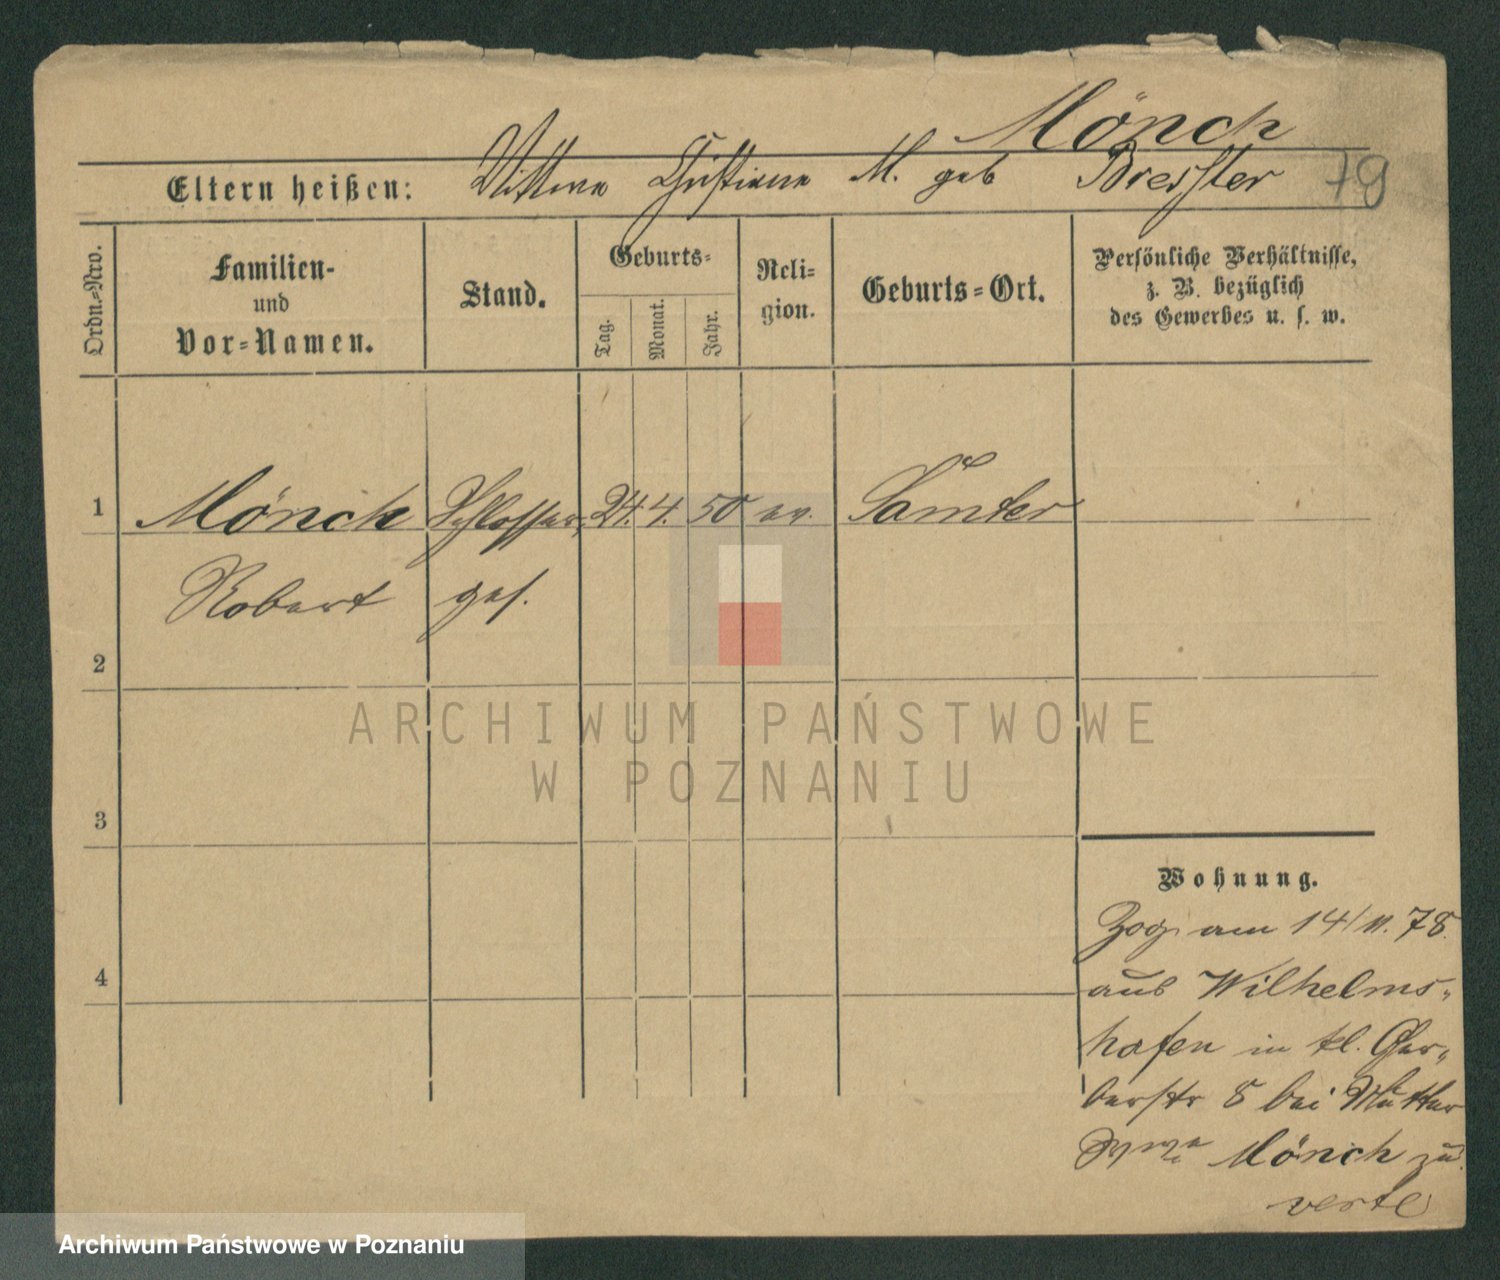 Mönch
Eltern heißen: Christiane M. geb Bressler 79
Ordn.-Nro.
Familien-
und
Vor-Namen.
Stand.
Geburts-
Tag.
Monat.
Jahr.
Reli-
gion.
Geburts-Ort.
Persönliche Verhältnisse,
z. B. bezüglich
des Gewerbes u. s. w.
1 Mönch Schlosser, 24. 4. 50 ev. Samter
Robert ges.
2
ARCHIWUM PAŃSTWOWE
W POZNANIU
3
Wohnung.
Zog am 14/11. 78.
4
aus Wilhelms-
hafen in kl. Ger-
berstr 8 bei Mutter
Mönch zu.
verte
Archiwum Państwowe w Poznaniu